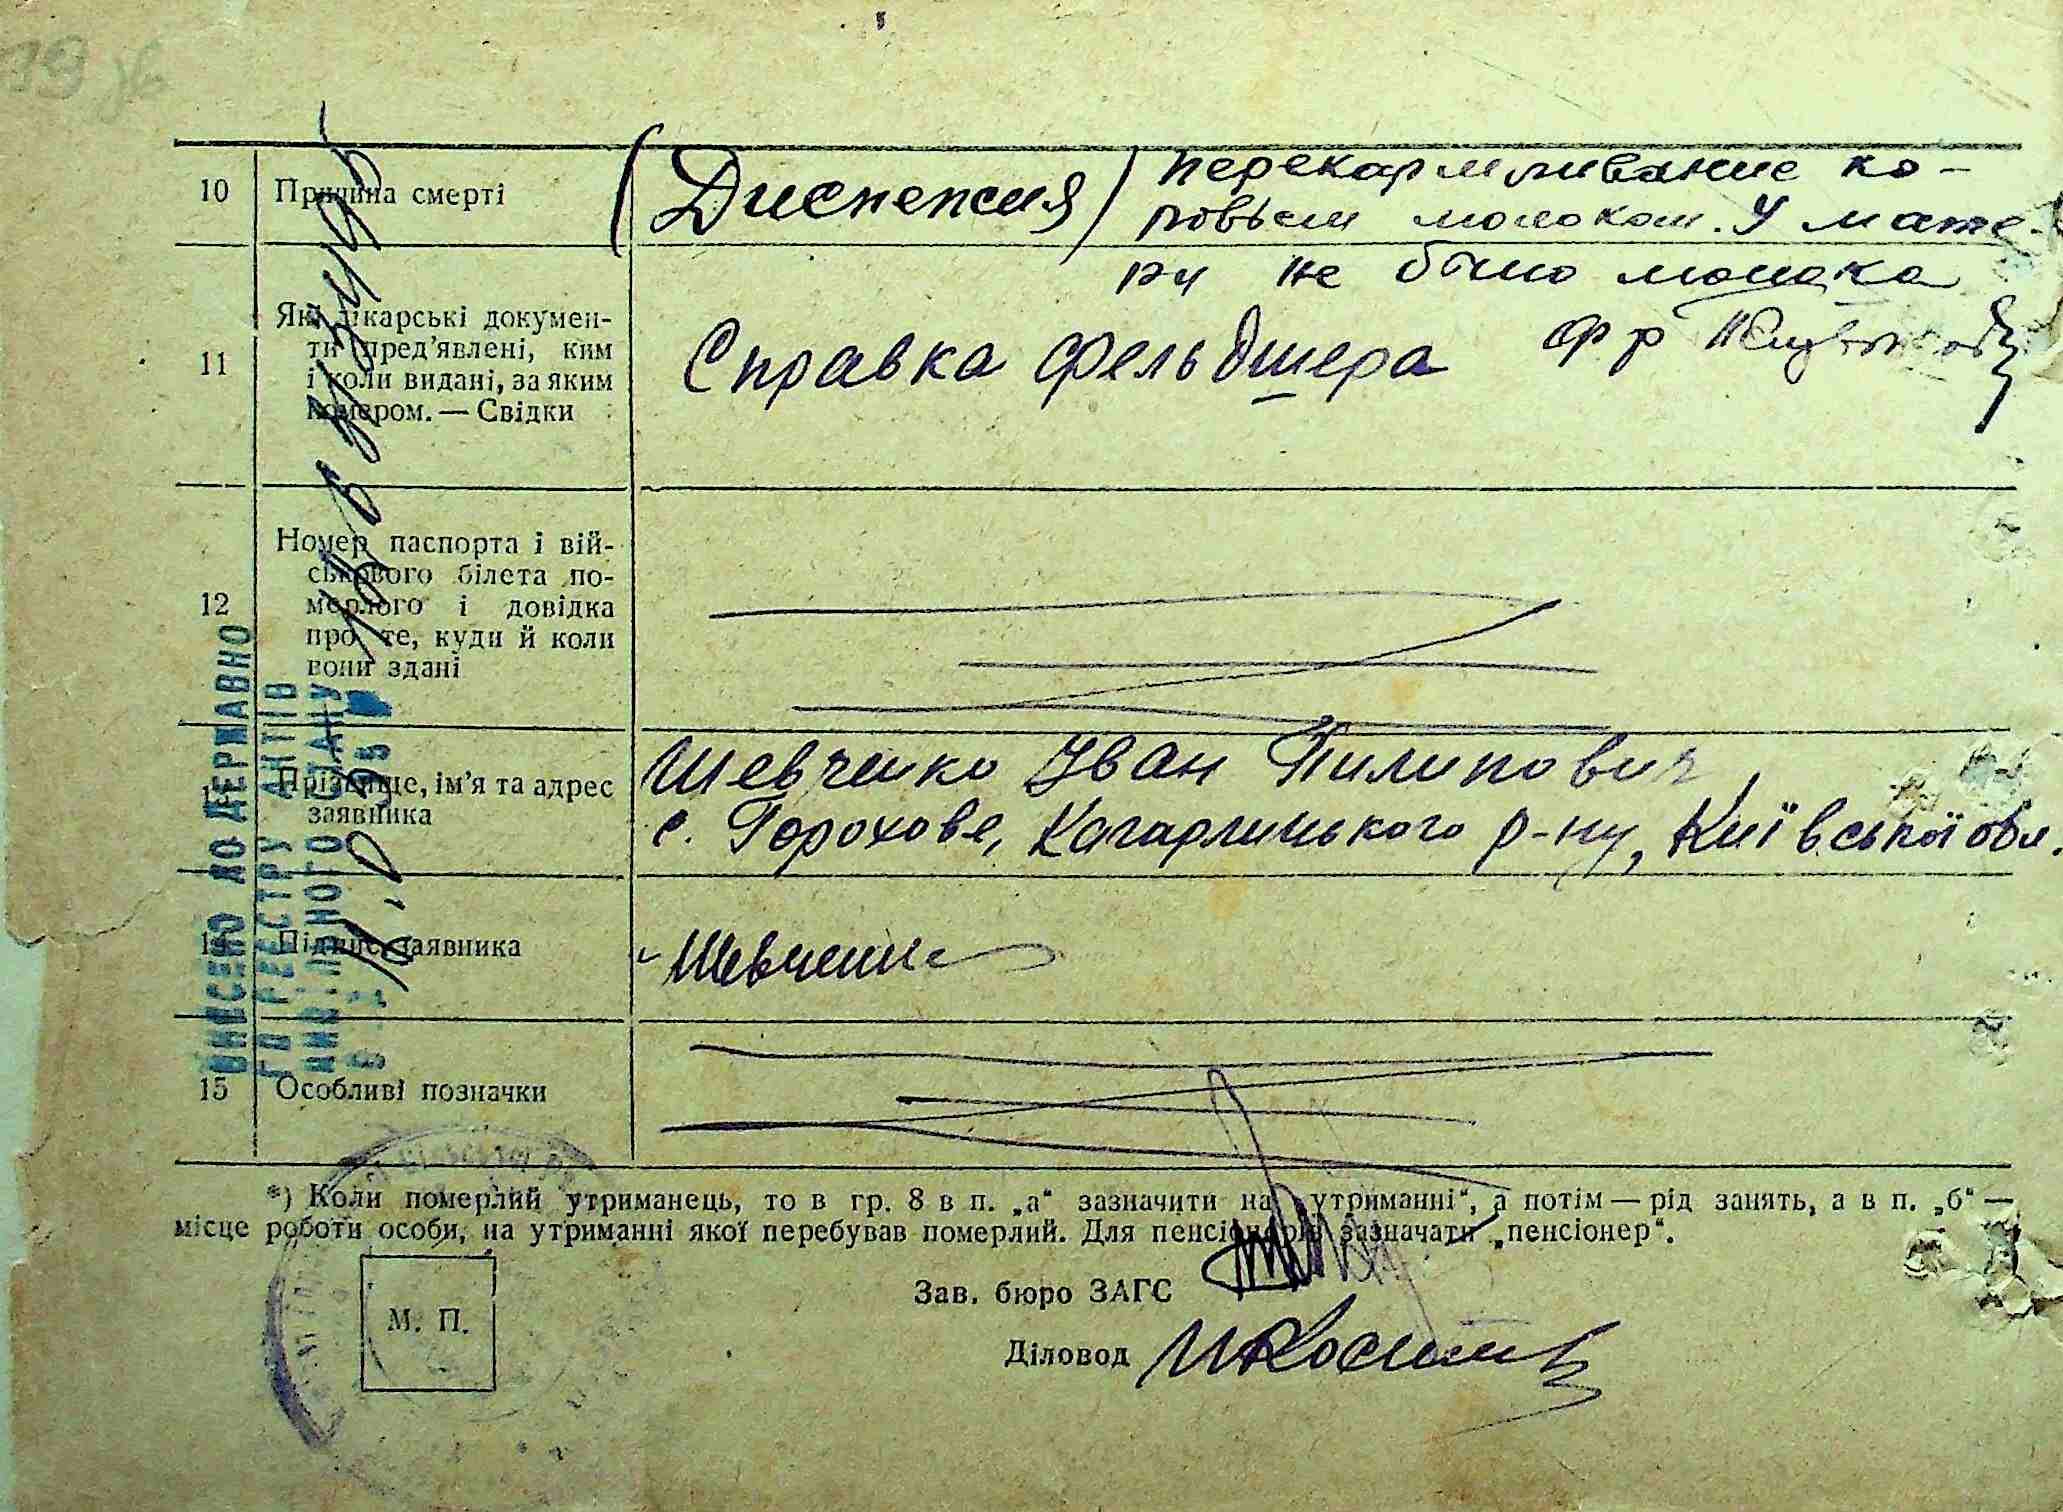 10 Причина смерті (Диспепсия) перекармливание ко-
ровьем молоком. У мате-
ри не было молока
11 Які лікарські докумен-
ти пред’явлені, ким
і коли видані, за яким
номером. — Свідки
Справка фельдшера
12 Номер паспорта і вій-
ськового білета по-
мерлого і довідка
про те, куди й коли
вони здані
Прізвище, ім’я та адрес
заявника
Шевченко Іван Пилипович,
с. Горохове, Кагарлицького р-ну, Київської обл.
14 Підпис заявника Шевченко
15 Особливі позначки
*) Коли померлий утриманець, то в гр. 8 в п. „а“ зазначити на утриманні“, а потім — рід занять, а в п. „б“ —
місце роботи особи, на утриманні якої перебував померлий. Для пенсіонерів зазначати „пенсіонер“.
Зав. бюро ЗАГС
М. П.
Діловод
ВНЕСЕНО ДО ДЕРЖАВНО
ГО РЕЄСТРУ АКТІВ
ЦИВІЛЬНОГО СТАНУ